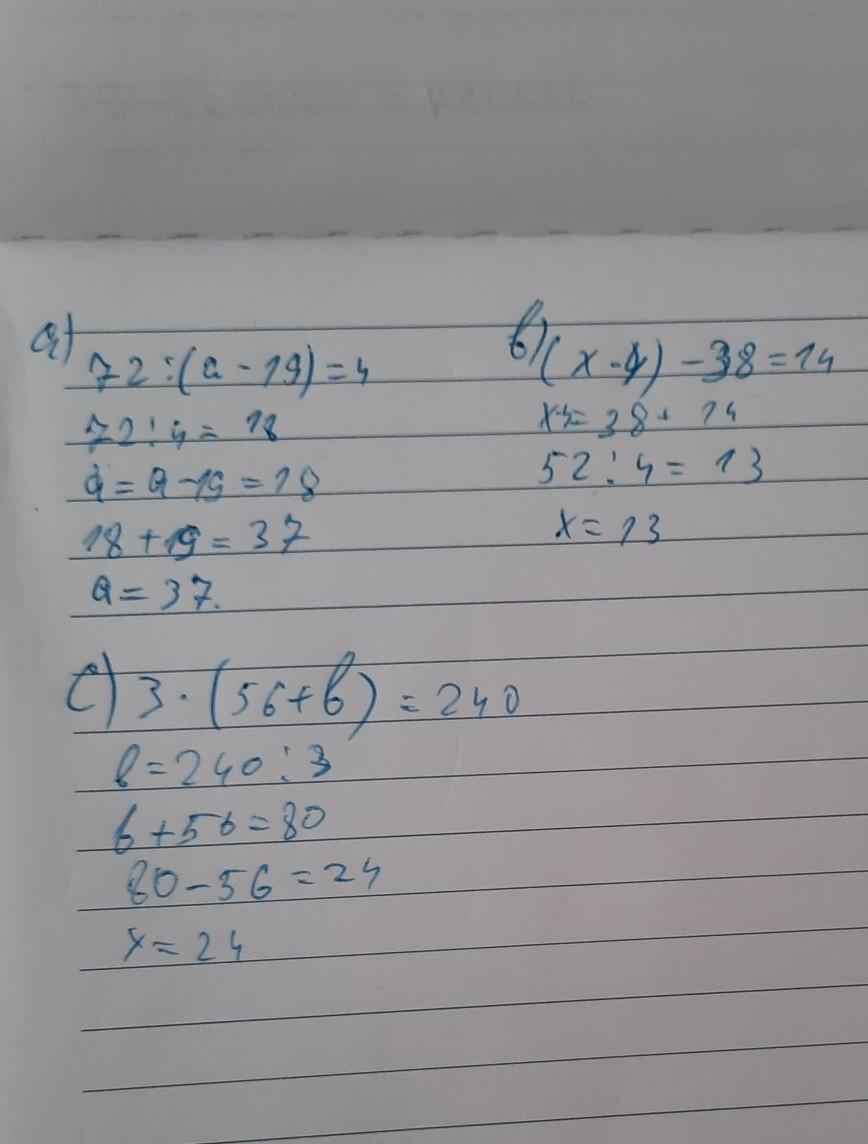 a)
72:(a-19)=4
72:4=18
a=a-19=18
18+19=37
a=37.
b)(x·4)-38=14
38+14
52:4=13
x=13
c) 3·(56+b)=240
b=240:3
b+56=80
80-56=24
x=24